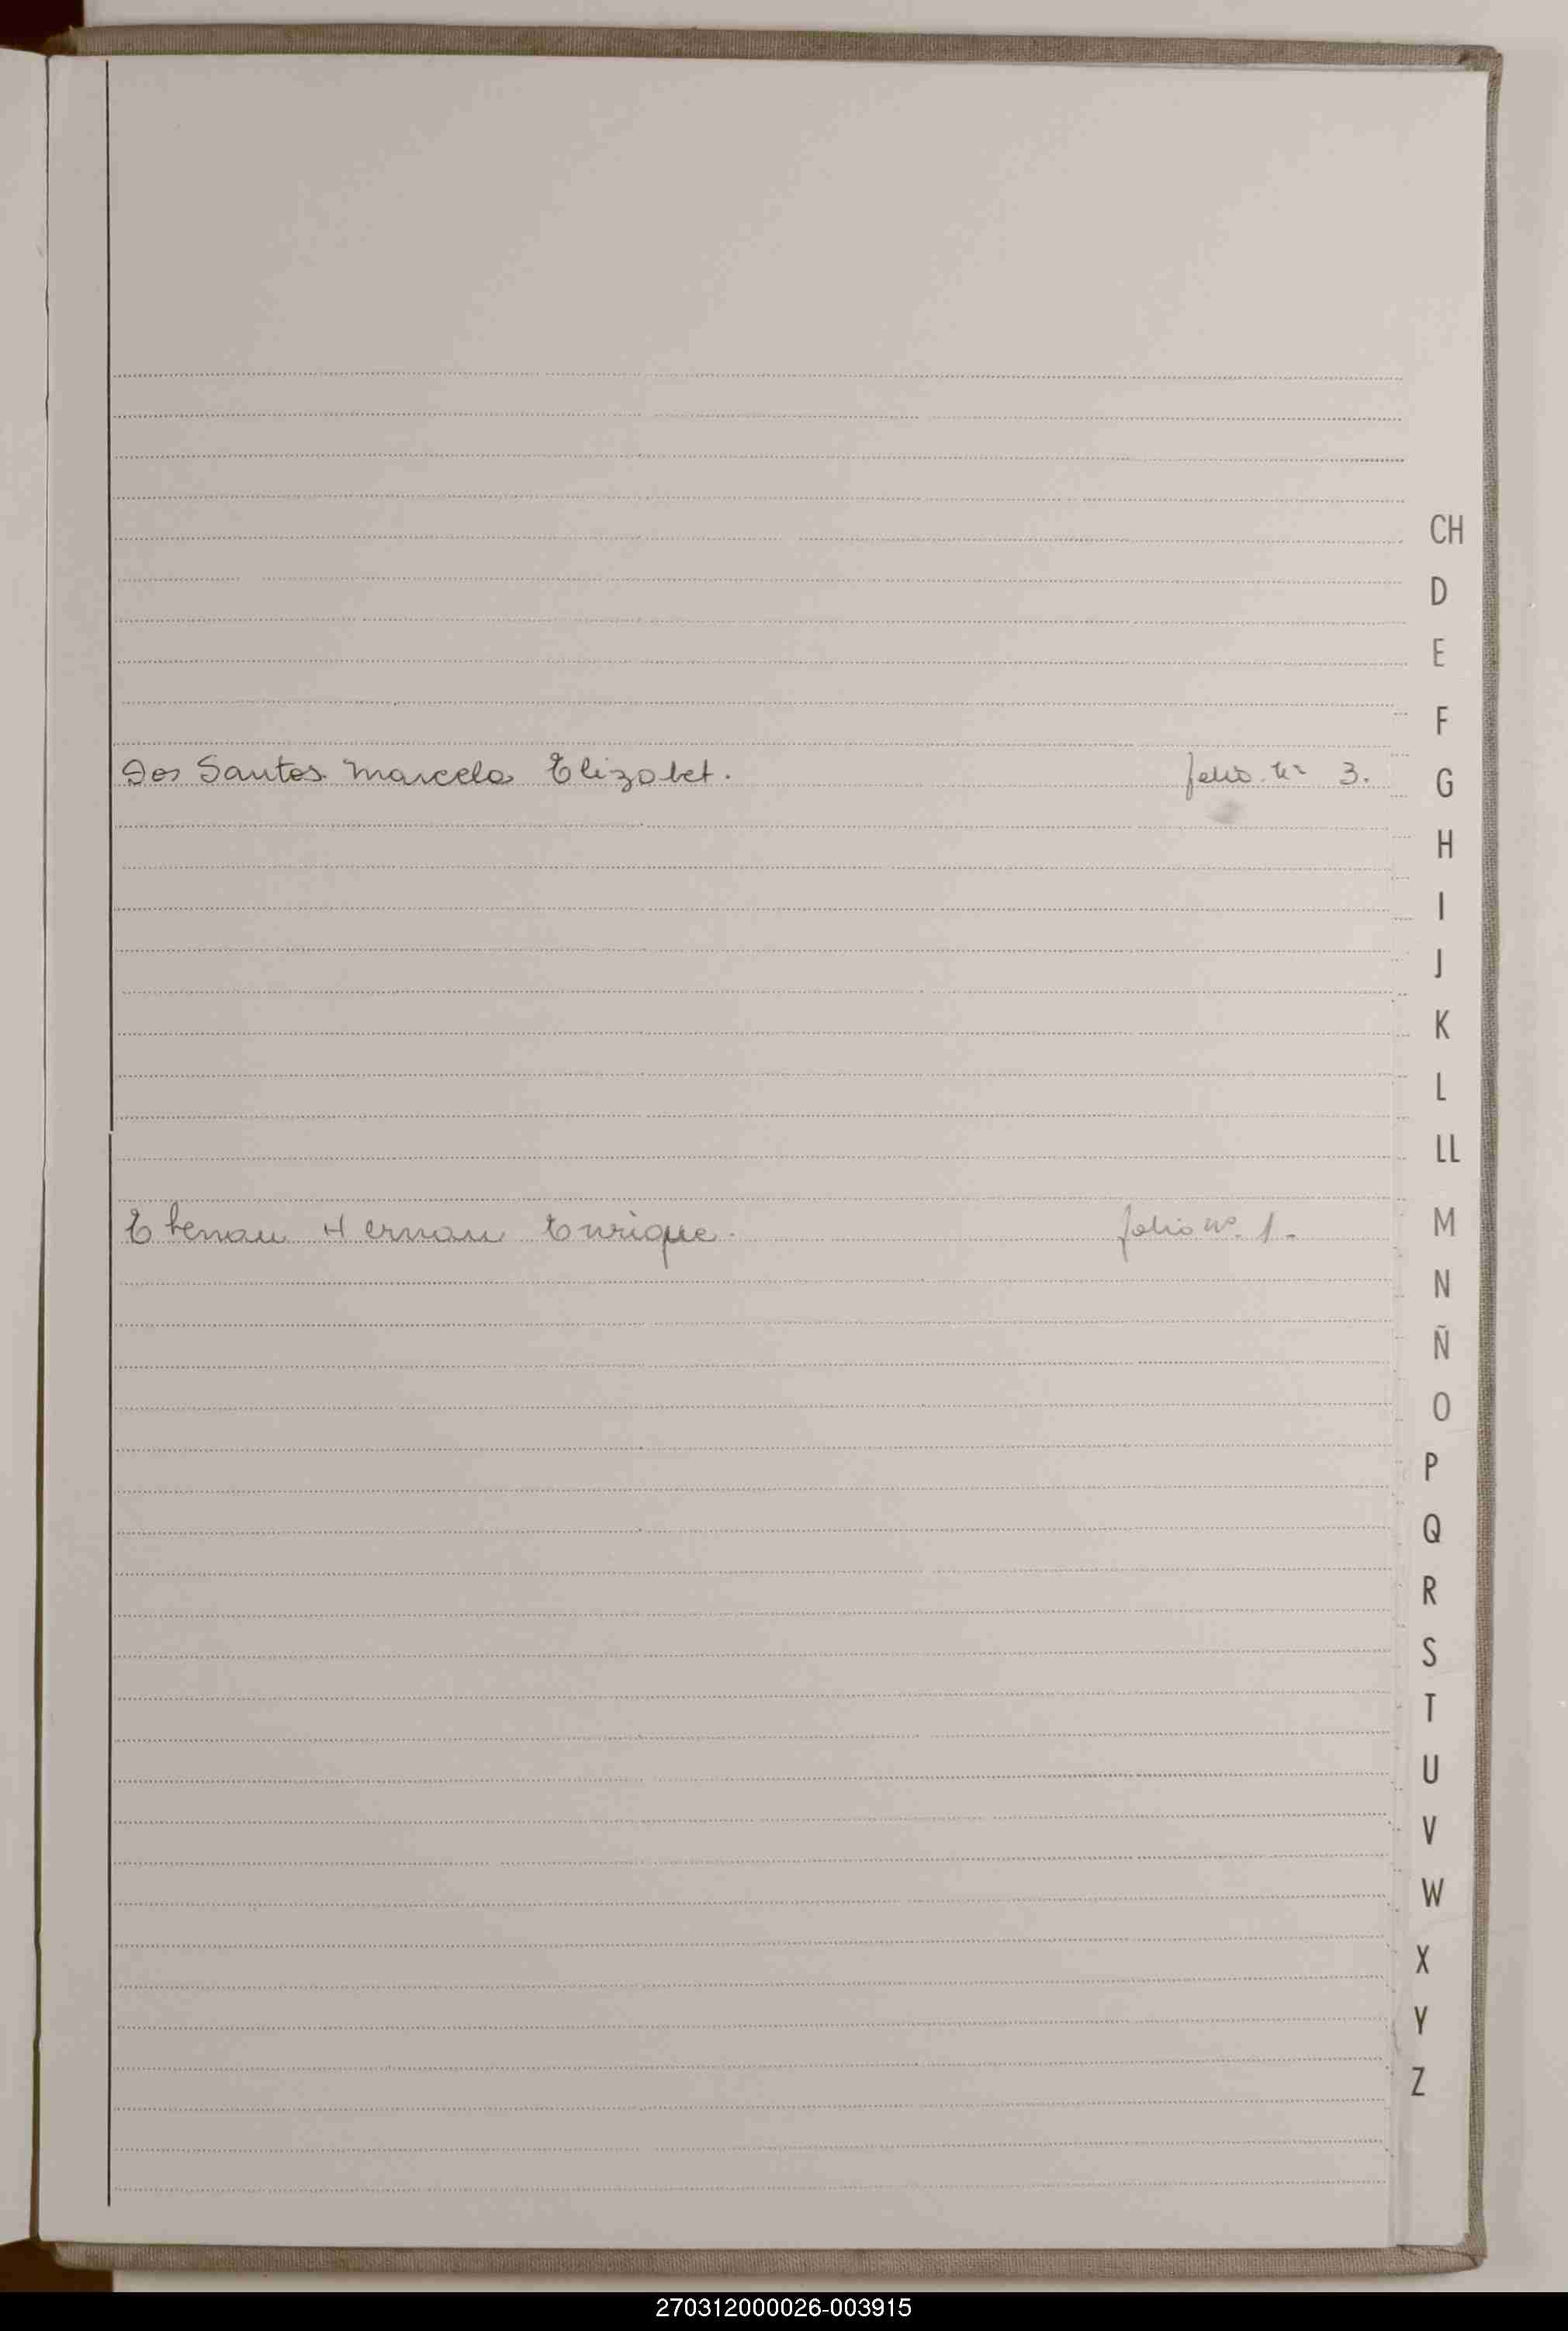 Dos Santos Marcela Elizabet. folio nº 3.
Hernan Enrique. folio nº 1.
CH
D
E
F
G
H
I
J
K
L
LL
M
N
Ñ
O
P
Q
R
S
T
U
V
W
X
Y
Z
270312000026-003915